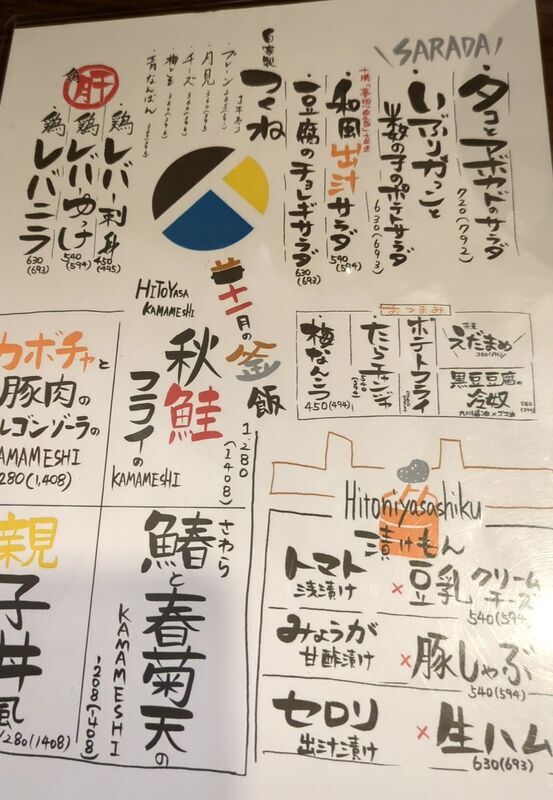 SARADA
・タコとアボカドのサラダ
720(792)
・いぶりガッコと
数の子のポテトサラダ
630(693)
・和風出汁サラダ
540(594)
・豆腐のチョレギサラダ
630(693)
自家製
つくね
・プレーン
・月見 360(396)
・チーズ 360(396)
・梅しそ 360(396)
・青なんばん
鶏肝
・鶏レバー刺身
450(495)
・鶏レバーゆっけ
540(594)
・鶏レバニラ
630(693)
HITOYASA
KAMAMESHI
十一月の釜飯
秋鮭
フライの
KAMAMESHI
1.280
(1408)
カボチャと
豚肉の
ルゴンゾーラの
AMAMESHI
280(1,408)
さわら
鰆と春菊天の
KAMAMESHI
親
子丼
風
1280(1408)
おつまみ
梅なんこつ
450(494)
たらチャンジャ
ポテトフライ
えだまめ
黒豆豆腐の
冷奴
540
(594)
Hitoniyasashiku
漬けもん
トマト
浅漬け
×豆乳クリーム
チーズ
540(594
みょうが
甘酢漬け
×豚しゃぶ
540(594)
セロリ
出汁漬け
×生ハム
630(693)